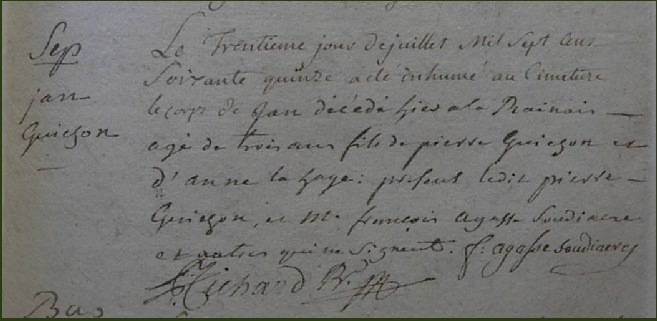 Sep
jan
Guieson
Le Trentieme jour de juillet Mil Sept Cens
Soixante quinze a été inhumé au Cimetiere
le corps de jan décédé hier a la
agé de trois ans fils de pierre Guieson et
d'anne la haye : présent ledit pierre
Guieson, et Mr françois agasse Soudiacre
et autres qui ne signent. f: agasse Soudiacre
Richard
Bap